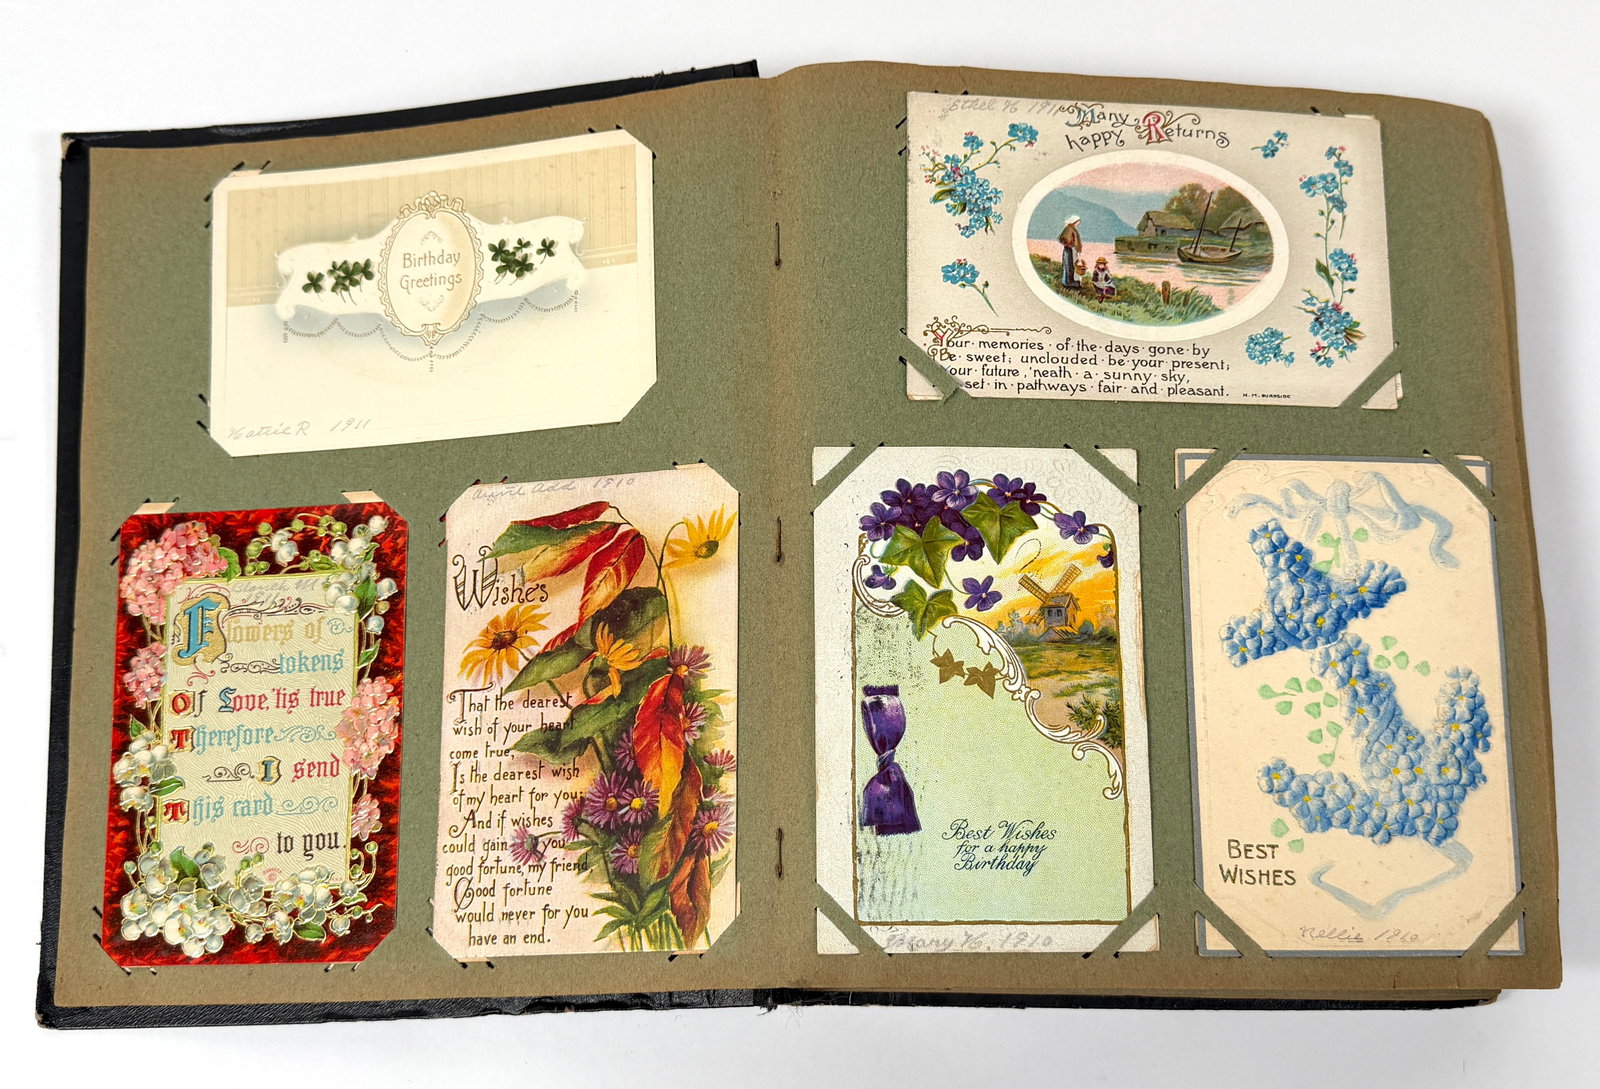 Birthday
Greetings
Hattie R 1911
Flowers of
tokens
Of Love, 'tis true
Therefore
I send
This card
to you.
Aunt Add 1910
Wishes
That the dearest
wish of your heart
come true,
Is the dearest wish
of my heart for you;
And if wishes
could gain you
good fortune, my friend,
Good fortune
would never for you
have an end.
Ethel H 1911
Many
happy Returns
Your · memories · of · the · days · gone · by
Be · sweet; unclouded · be · your · present;
Your · future, 'neath · a · sunny · sky,
set · in · pathways · fair · and · pleasant.
H. M. BURNSIDE
Best Wishes
for a happy
Birthday
Mary H. 1910
BEST
WISHES
Nellie 1910